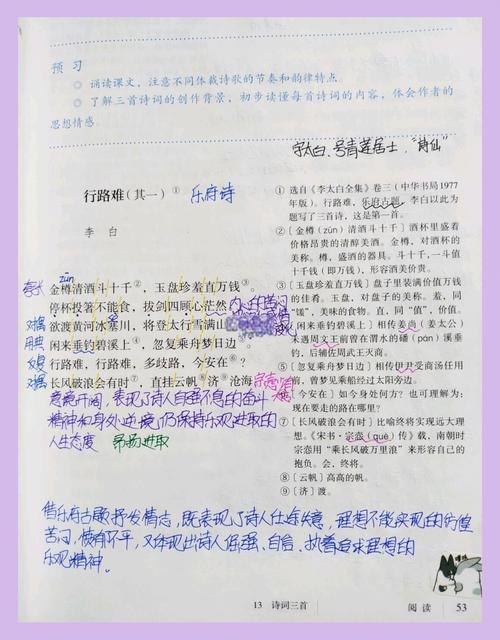 预习
◎ 诵读课文，注意不同体裁诗歌的节奏和韵律特点。
◎ 了解三首诗词的创作背景，初步读懂每首诗词的内容，体会作者的
思想情感。
字太白、号青莲居士，“诗仙”
行路难（其一）① 乐府诗
李 白
zūn
金樽清酒斗十千②，玉盘珍羞直万钱③。
停杯投箸不能食，拔剑四顾心茫然 内心的苦闷
欲渡黄河冰塞川，将登太行雪满山
用典 闲来垂钓碧溪上④，忽复乘舟梦日边
行路难，行路难，多歧路，今安在⑥？
长风破浪会有时⑦，直挂云帆⑧济⑨沧海 宗悫
意境开阔，表现了诗人自强不息的奋斗
精神和身处逆境仍保持乐观进取的
人生态度 昂扬进取
① 选自《李太白全集》卷三（中华书局1977
年版）。行路难，乐府古题，李白以此为
题写了三首诗，这是第一首。
②〔金樽（zūn）清酒斗十千〕酒杯里盛着
价格昂贵的清醇美酒。金樽，对酒杯的
美称。樽，盛酒的器具。斗十千，一斗值
十千钱（即万钱），形容酒美价贵。
③〔玉盘珍羞直万钱〕盘子里装满价值万钱
的佳肴。玉盘，对盘子的美称。羞，同
“馐”，美味的食物。直，同“值”，价值。
〔闲来垂钓碧溪上〕相传姜尚（姜太公）
未遇周文王前曾在渭水的磻（pán）溪垂
钓，后辅佐周武王灭商。
⑤〔忽复乘舟梦日边〕相传伊尹受商汤任用
前，曾梦见乘船经过太阳旁边。
〔今安在〕如今身处何方？也可理解为：
现在要走的路在哪里？
⑦〔长风破浪会有时〕比喻终将实现远大理
想。《宋书·宗悫（què）传》载，南朝时
宗悫用“乘长风破万里浪”来形容自己的
抱负。会，终将。
⑧〔云帆〕高高的帆。
⑨〔济〕渡。
借乐府古题抒发情志，既表现了诗人仕途失意，理想不能实现的彷徨
苦闷，愤郁不平，又体现出诗人倔强、自信、执着追求理想的
乐观精神。
13 诗词三首
阅读 53